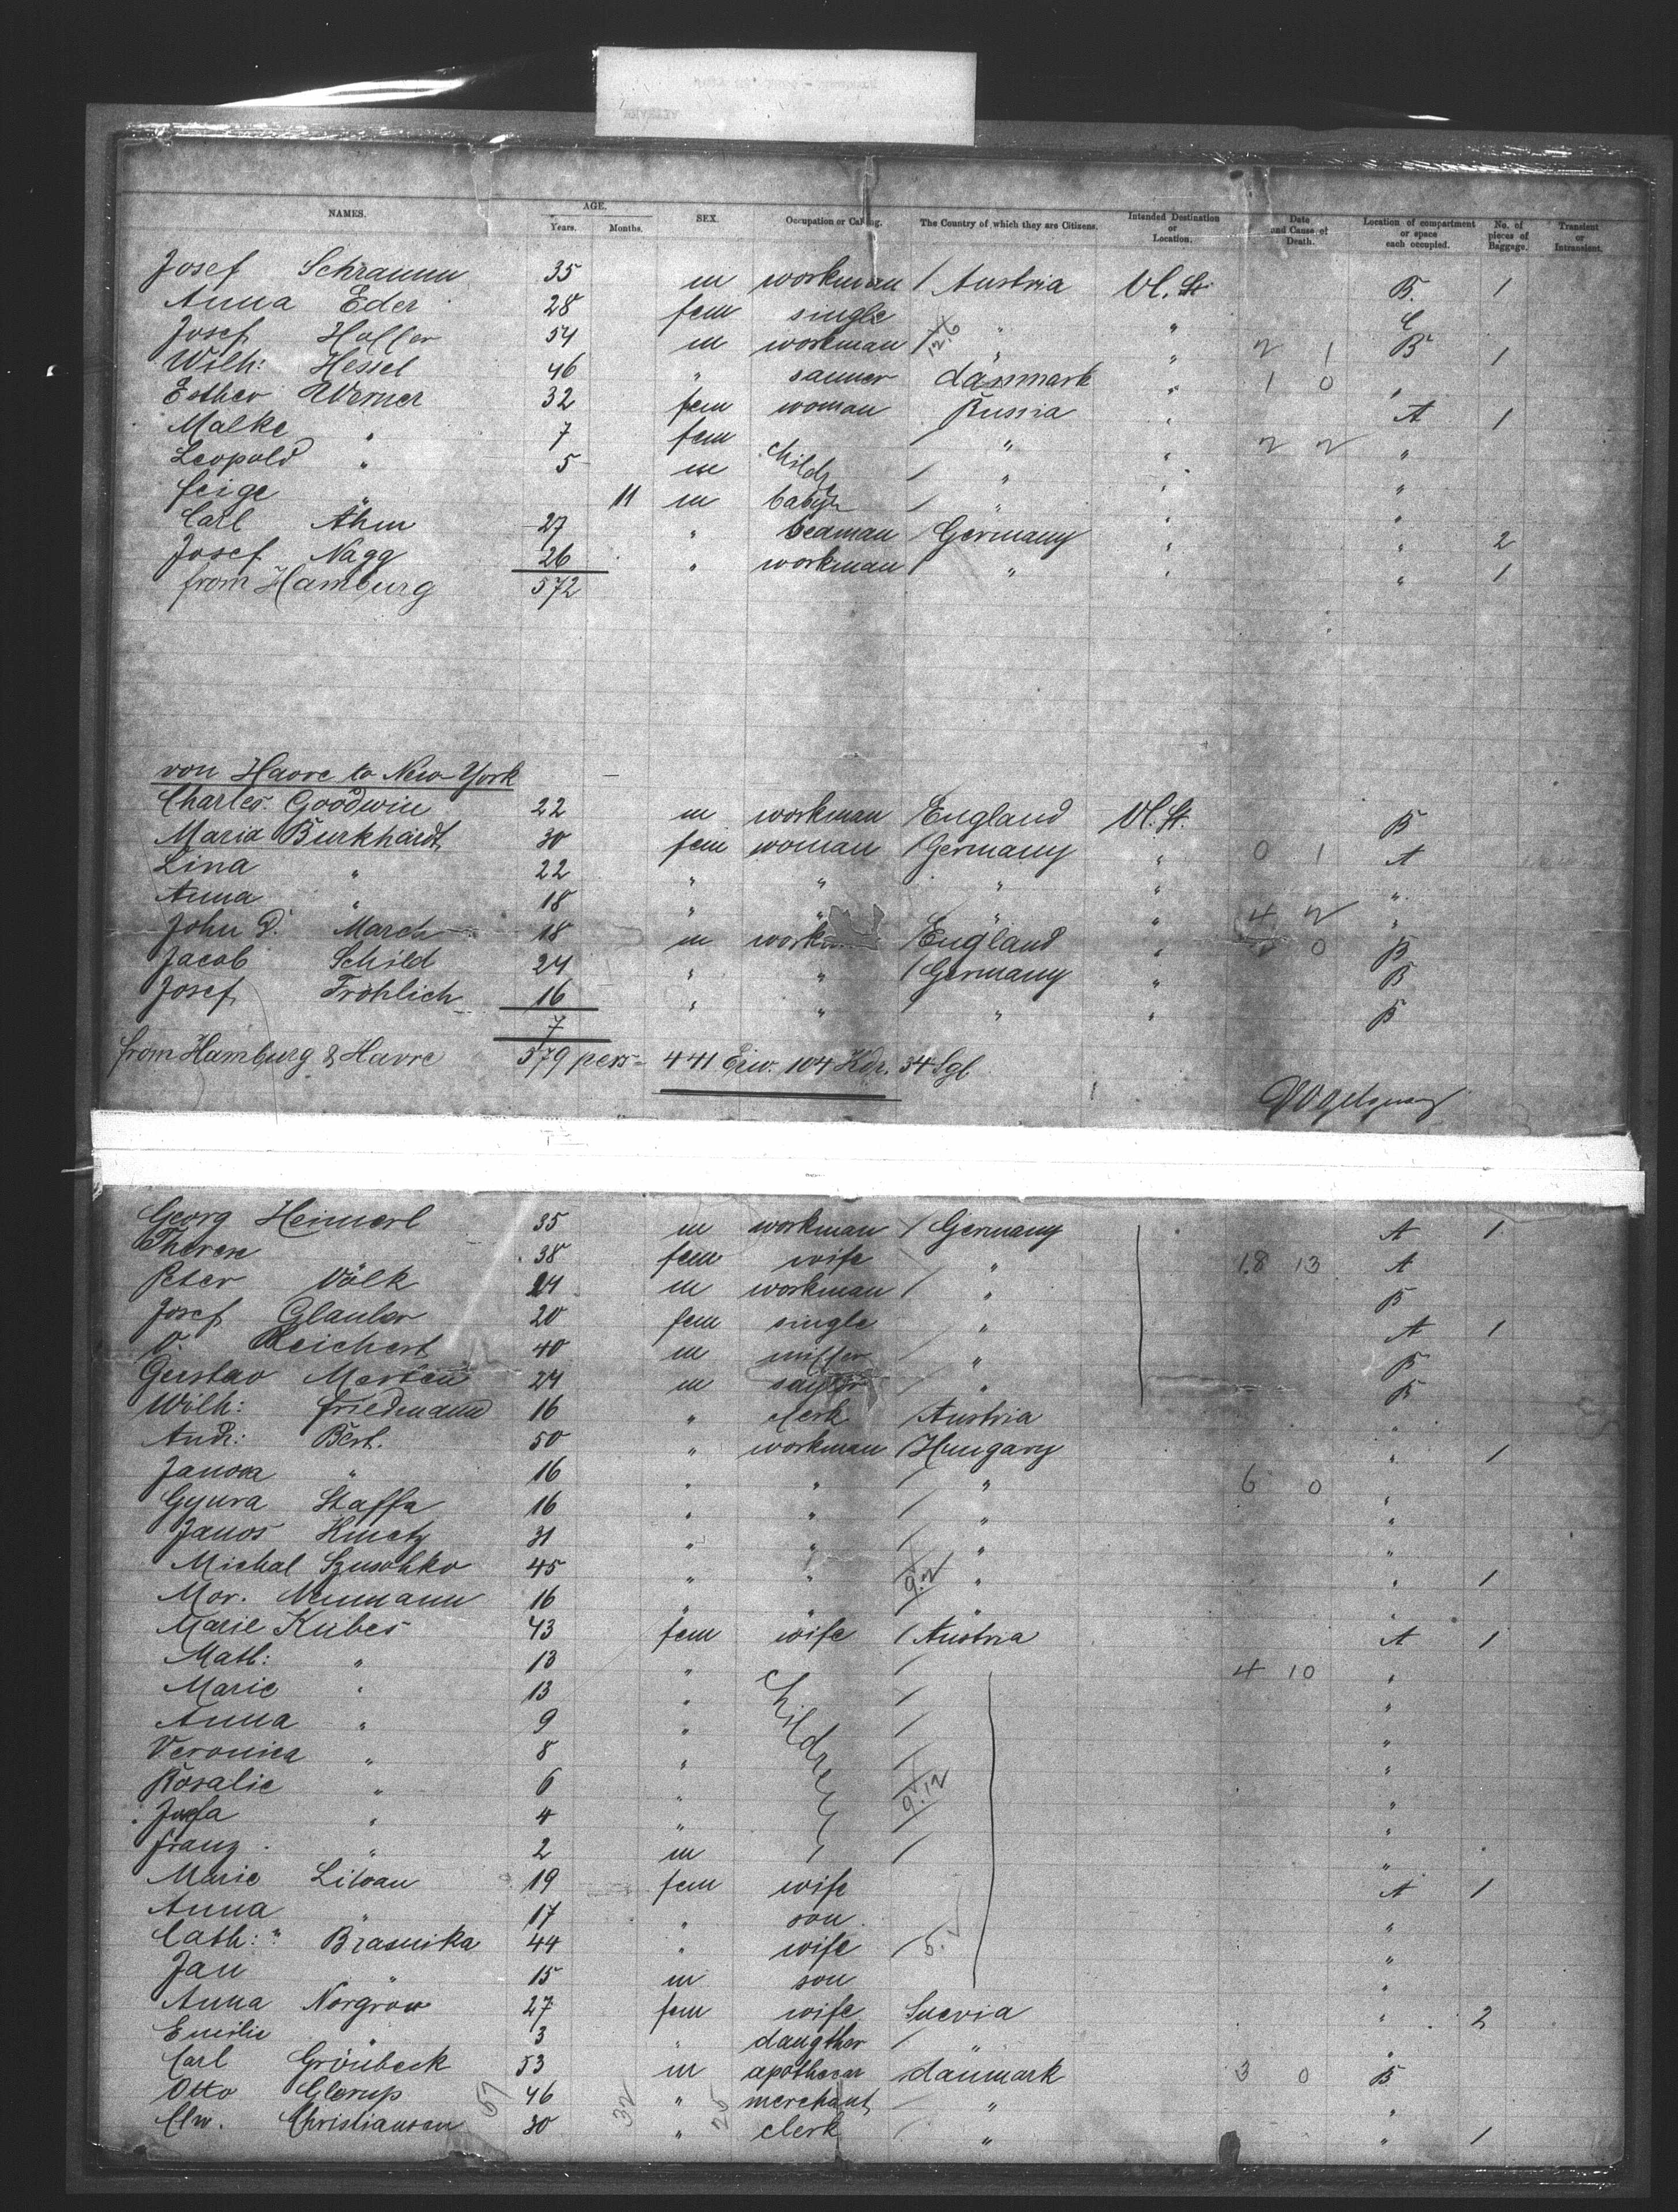 NAMES. AGE. Years. Months. SEX. Occupation or Calling. The Country of which they are Citizens. Intended Destination or Location. Date and Cause of Death. Location of compartment or space each occupied. No. of pieces of Baggage. Transient or Intransient.
Josef Schramm 35 m workman / Austria Vl. St. B. 1
Anna Eder 28 fem single " " C
Josef Hoffer 54 m workman / 12.6 " " 2 1 B 1
Wilh: Hessel 46 " danmark " 1 0 "
Esther Werner 32 fem woman Russia " A 1
Malke " 7 fem / " " 2 2 "
Leopold " 5 m childr / " " "
feige " 11 m baby / " " "
Carl Ahm 27 " seaman / Germany " " 2
Josef Nagy 26 " workman / " " " 1
from Hamburg 572
von Havre to New-York
Charles Goodwin 22 m workman / England Vl. St. B
Maria Burkhardt 30 fem woman / Germany " 0 1 A
Lina " 22 " " " " "
Anna " 18 " " " " 4 2 "
John D. March 18 m workm / England " 0 B
Jacob Schild 24 " " / Germany " B
Josef Fröhlich 16 " " " " B
7
from Hamburg & Havre 579 pers - 441 Erw. 104 Kdr. 34 Sgl
Georg Heimerl 35 m workman / Germany A 1
Therese 38 fem wife " 18 13 A
Peter Völk 24 m workman / " B
Josef Glauber 20 fem single " A 1
Reichert 40 m miller " B
Gustav Merten 24 m / " B
Wilh: Friedmann 16 " clerk / Austria "
Andr: Bert. 50 " workman / Hungary " 1
Janos " 16 " " / " 6 0 "
Gyura Staffa 16 " " / " "
Janos Hmetz 31 " " / " "
Michal Szusohko 45 " " 9.2 " " 1
Mor. Neumann 16 " " " "
Marie Kubes 43 fem wife / Austria A 1
Math: " 13 " / 4 10 "
Marie " 13 " Children / "
Anna " 9 " / "
Veronica " 8 " / "
Rosalie " 6 " 9.12 "
Josefa " 4 " / "
franz " 2 m / "
Marie Litvan 19 fem wife A 1
Anna " 17 " son "
Cath: " Brasnika 44 " wife / 5. "
Jan " 15 m son "
Anna Norgrow 27 fem wife Suevia " 2
Emilie " 3 " daugther / " "
Carl Grönbeck 53 m apothecar danmark 3 0 B
Otto Glerup 46 " merchant / " "
Chr. Christiansen 57 30 32 " 25 clerk / " " 1